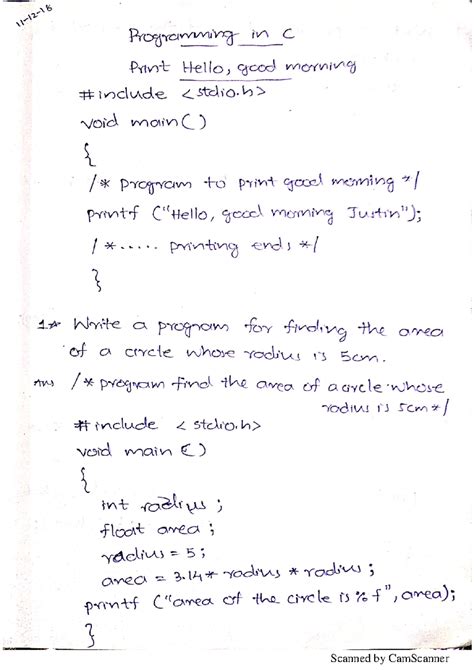 11-12-18
Programming in C
Print Hello, good morning
#include <stdio.h>
void main()
{
/* program to print good morning */
printf ("Hello, good morning Justin");
/*..... printing ends */
}
1* Write a program for finding the area
of a circle whose radius is 5cm.
Ans /* program find the area of a circle whose
radius is 5cm */
#include <stdio.h>
void main ()
{
int radius ;
float area ;
radius = 5 ;
area = 3.14 * radius * radius ;
printf ("area of the circle is %f", area);
}
Scanned by CamScanner